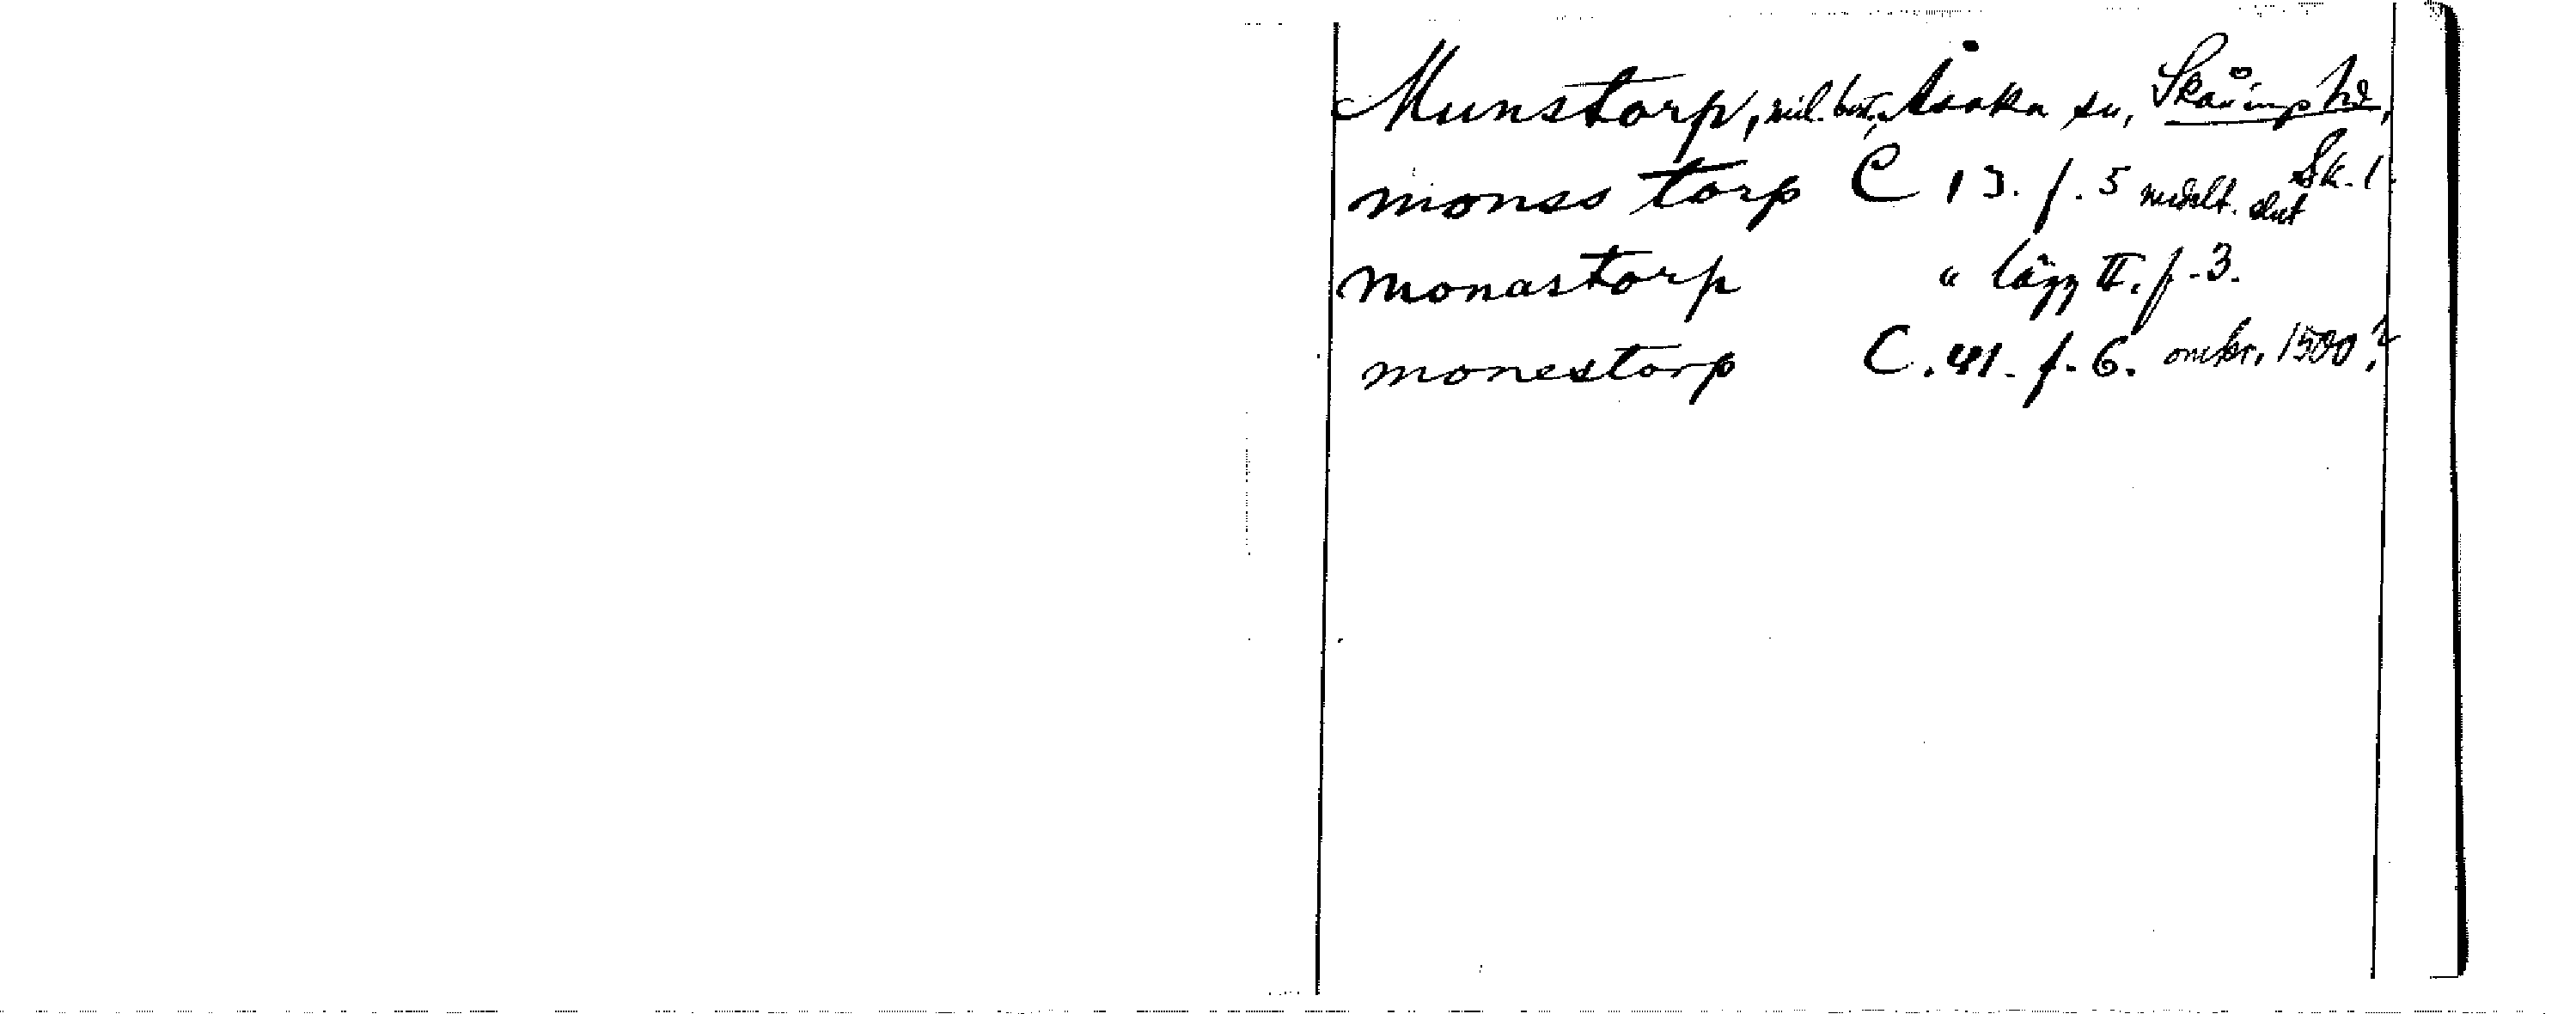 Munstorp, mil. bost. Åsaka sn, Skånings hd,
Sk. l.
monss torp C 13. f. 5 medelt. slut
monastorp " lägg II. f. 3.
monestorp C. 41. f. 6. omkr. 1500?